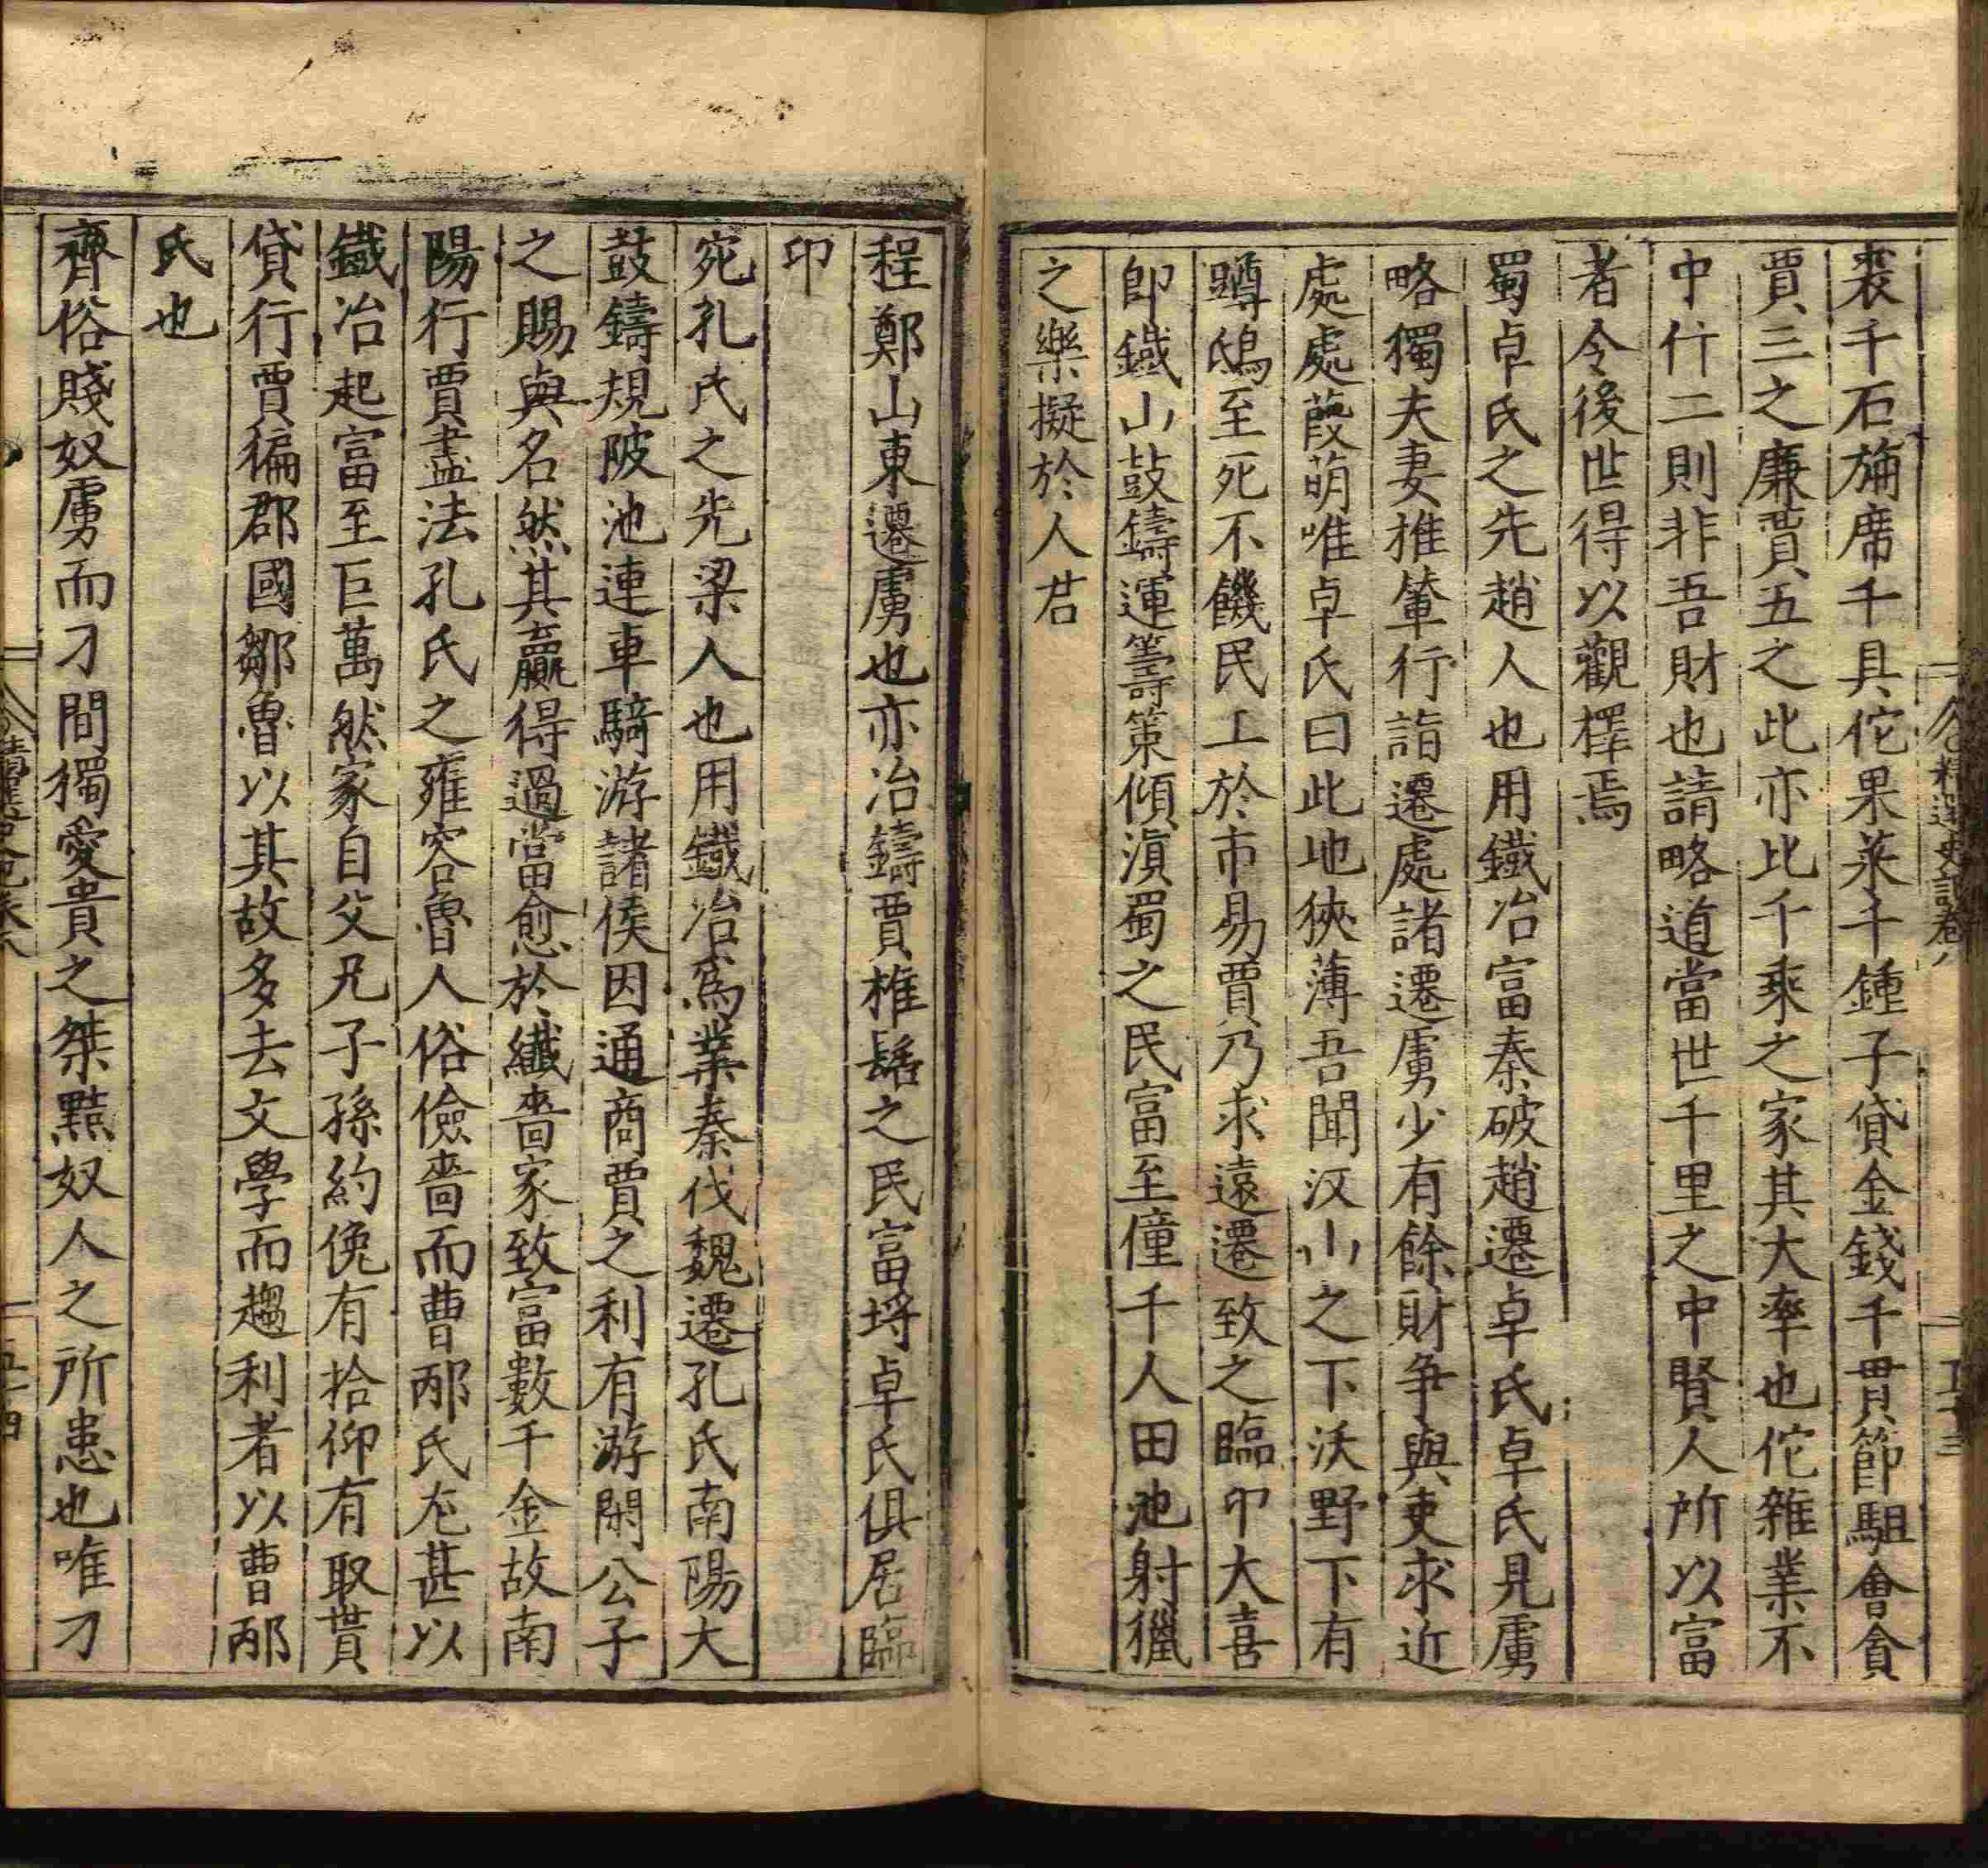 精選史記卷八
五十三
裘千石旃席千具佗果菜千鍾子貸金錢千貫節駔會貪
賈三之廉賈五之此亦比千乘之家其大率也佗雜業不
中什二則非吾財也請略道當世千里之中賢人所以富
者令後世得以觀擇焉
蜀卓氏之先趙人也用鐵冶富秦破趙遷卓氏卓氏見虜
略獨夫妻推輦行詣遷處諸遷虜少有餘財争與吏求近
處處葭萌唯卓氏曰此地狹薄吾聞汶山之下沃野下有
蹲鴟至死不饑民工於市易賈乃求遠遷致之臨卭大喜
即鐵山鼓鑄運籌策傾滇蜀之民富至僮千人田池射獵
之樂擬於人君
程鄭山東遷虜也亦冶鑄賈椎髻之民富埓卓氏俱居臨
卬
宛孔氏之先梁人也用鐵冶爲業秦伐魏遷孔氏南陽大
鼓鑄規陂池連車騎游諸侯因通商賈之利有游閑公子
之賜與名然其贏得過當愈於纖嗇家致富數千金故南
陽行賈盡法孔氏之雍容魯人俗儉嗇而曹邴氏尤甚以
鐵冶起富至巨萬然家自父兄子孫約俛有拾仰有取貰
貸行賈徧郡國鄒魯以其故多去文學而趨利者以曹邴
氏也
齊俗賤奴虜而刁間獨愛貴之桀黠奴人之所患也唯刁
五十四